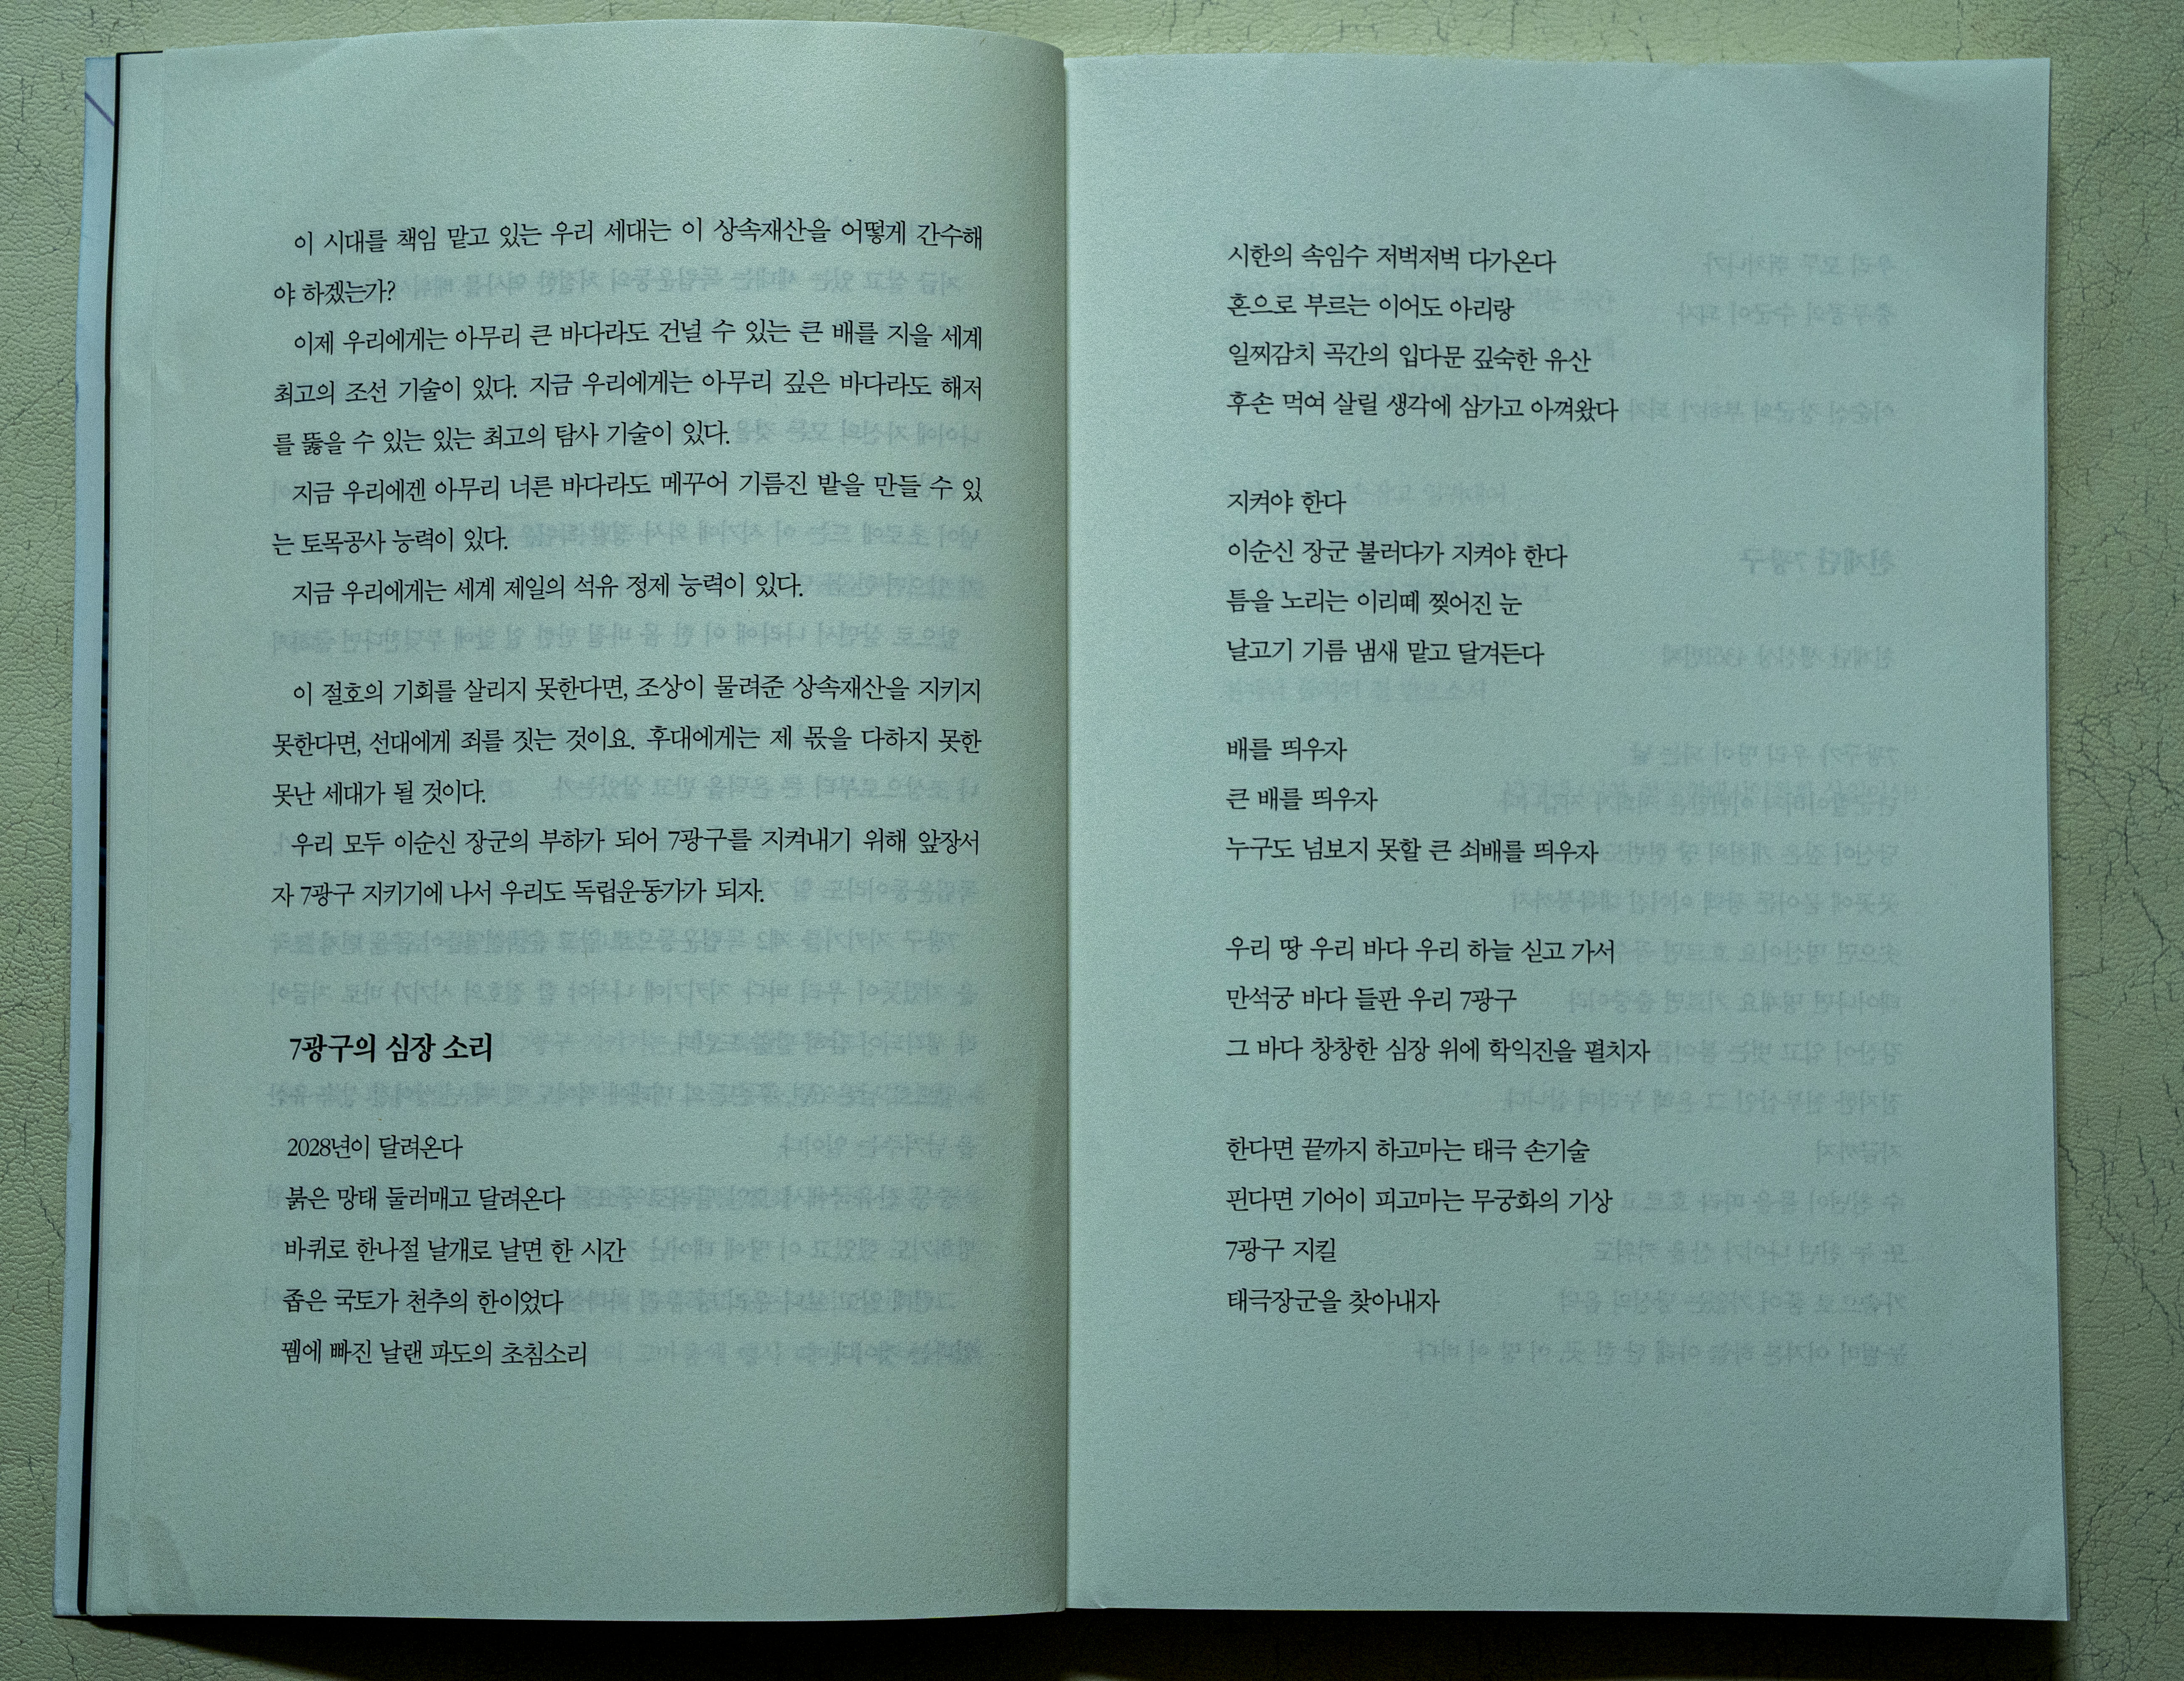 이 시대를 책임 맡고 있는 우리 세대는 이 상속재산을 어떻게 간수해
야 하겠는가?
이제 우리에게는 아무리 큰 바다라도 건널 수 있는 큰 배를 지을 세계
최고의 조선 기술이 있다. 지금 우리에게는 아무리 깊은 바다라도 해저
를 뚫을 수 있는 있는 최고의 탐사 기술이 있다.
지금 우리에겐 아무리 너른 바다라도 메꾸어 기름진 밭을 만들 수 있
는 토목공사 능력이 있다.
지금 우리에게는 세계 제일의 석유 정제 능력이 있다.
이 절호의 기회를 살리지 못한다면, 조상이 물려준 상속재산을 지키지
못한다면, 선대에게 죄를 짓는 것이요. 후대에게는 제 몫을 다하지 못한
못난 세대가 될 것이다.
우리 모두 이순신 장군의 부하가 되어 7광구를 지켜내기 위해 앞장서
자 7광구 지키기에 나서 우리도 독립운동가가 되자.
7광구의 심장 소리
2028년이 달려온다
붉은 망태 둘러매고 달려온다
바퀴로 한나절 날개로 날면 한 시간
좁은 국토가 천추의 한이었다
꿈에 빠진 날랜 파도의 초침소리
시한의 속임수 저벅저벅 다가온다
혼으로 부르는 이어도 아리랑
일찌감치 곡간의 입다문 깊숙한 유산
후손 먹여 살릴 생각에 삼가고 아껴왔다
지켜야 한다
이순신 장군 불러다가 지켜야 한다
틈을 노리는 이리떼 찢어진 눈
날고기 기름 냄새 맡고 달겨든다
배를 띄우자
큰 배를 띄우자
누구도 넘보지 못할 큰 쇠배를 띄우자
우리 땅 우리 바다 우리 하늘 싣고 가서
만석궁 바다 들판 우리 7광구
그 바다 창창한 심장 위에 학익진을 펼치자
한다면 끝까지 하고마는 태극 손기술
핀다면 기어이 피고마는 무궁화의 기상
7광구 지킬
태극장군을 찾아내자